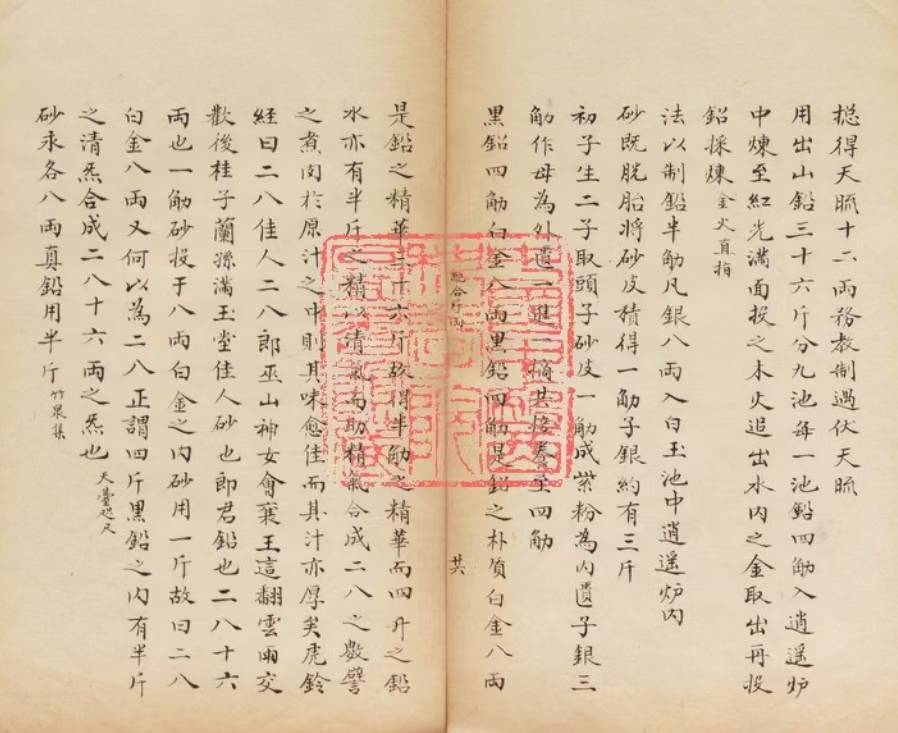 摠得天䟽十二兩務教制過伏天䟽
用出山鉛三十六斤分九池每一池鉛四觔入逍遥炉
中煉至紅光滿面投之木火追出水內之金取出再投
鉛採煉 金火直指
法以制鉛半觔凡銀八兩入白玉池中逍遥炉內
砂既脱胎將砂皮積得一觔子銀約有三斤
初子生二子取頭子砂皮一觔成紫粉為內匱子銀三
觔作母為外匱一進一
至四觔
黑鉛四觔白金八兩黑鉛四觔是鉛之朴質白金八兩
合斤兩
共
是鉛之精華三十六斤故得半觔之精華而四斤之鉛
水亦有半斤之精以清氣而助精氣合成二八之數譬
之煮肉於原汁之中則其味愈佳而其汁亦厚矣虎鈴
経曰二八佳人二八郎巫山神女會襄王這翻雲雨交
歡後桂子蘭孫滿玉堂佳人砂也郎君鉛也二八十六
兩也一觔砂投于八兩白金之內砂用一斤故曰二八
白金八兩又何以為二八正謂四斤黑鉛之內有半斤
之清炁合成二八十六兩之炁也 天臺咫尺
砂汞各八兩真鉛用半斤 竹泉集